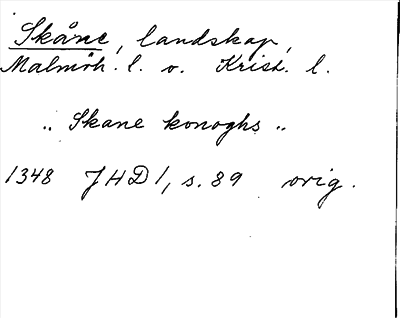 Skåne, landskap,
Malmöh. l. o. Krist. l.
„ Skane konoghs „
1348 JHD 1, s. 89 orig.